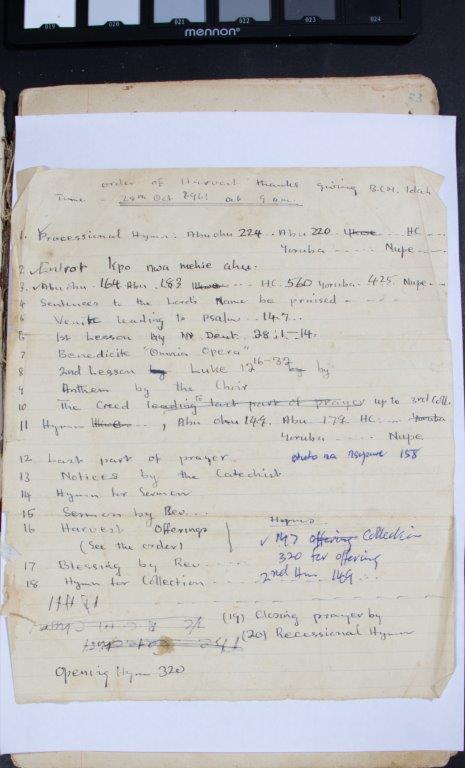 019 020 021 022 023 024
mennon
order of Harvest thanks giving B.C.M. Idah
Time - 28th Oct 1961 at 9 a.m.
1. Processional Hymn: Abu ohu 224. Abu 220. HC ---
Yoruba --- Nupe ---
2. Entrot Kpo nwa mehie ahu.
3. Abu ohu 164 Abu 183 HC. 560 Yoruba 425 Nupe --
4 Sentences to the Lord's Name be praised ---
5 Venite leading to Psalm 147.
6 1st Lesson by Deut. 28:1-14.
7 Benedicite "Omnia Opera"
8 2nd Lesson by Luke 12 16-32 by
9 Anthem by the Choir
10 The Creed leading to last part of prayer up to 3rd Coll.
11 Hymn, Abu ohu 149. Abu 179 HC. -- Yoruba
Yoruba ---- Nupe
12 Last part of prayer 158
13 Notices by the Catechist
14 Hymn for Sermon
15 Sermon by Rev...
16 Harvest Offerings
(See the order)
Hymns
147 offering Collection
320 for offering
2nd Hym 149
17 Blessing by Rev ----
18 Hymn for Collection ----
(19) Closing prayer by
(20) Recessional Hymn
Opening Hymn 320